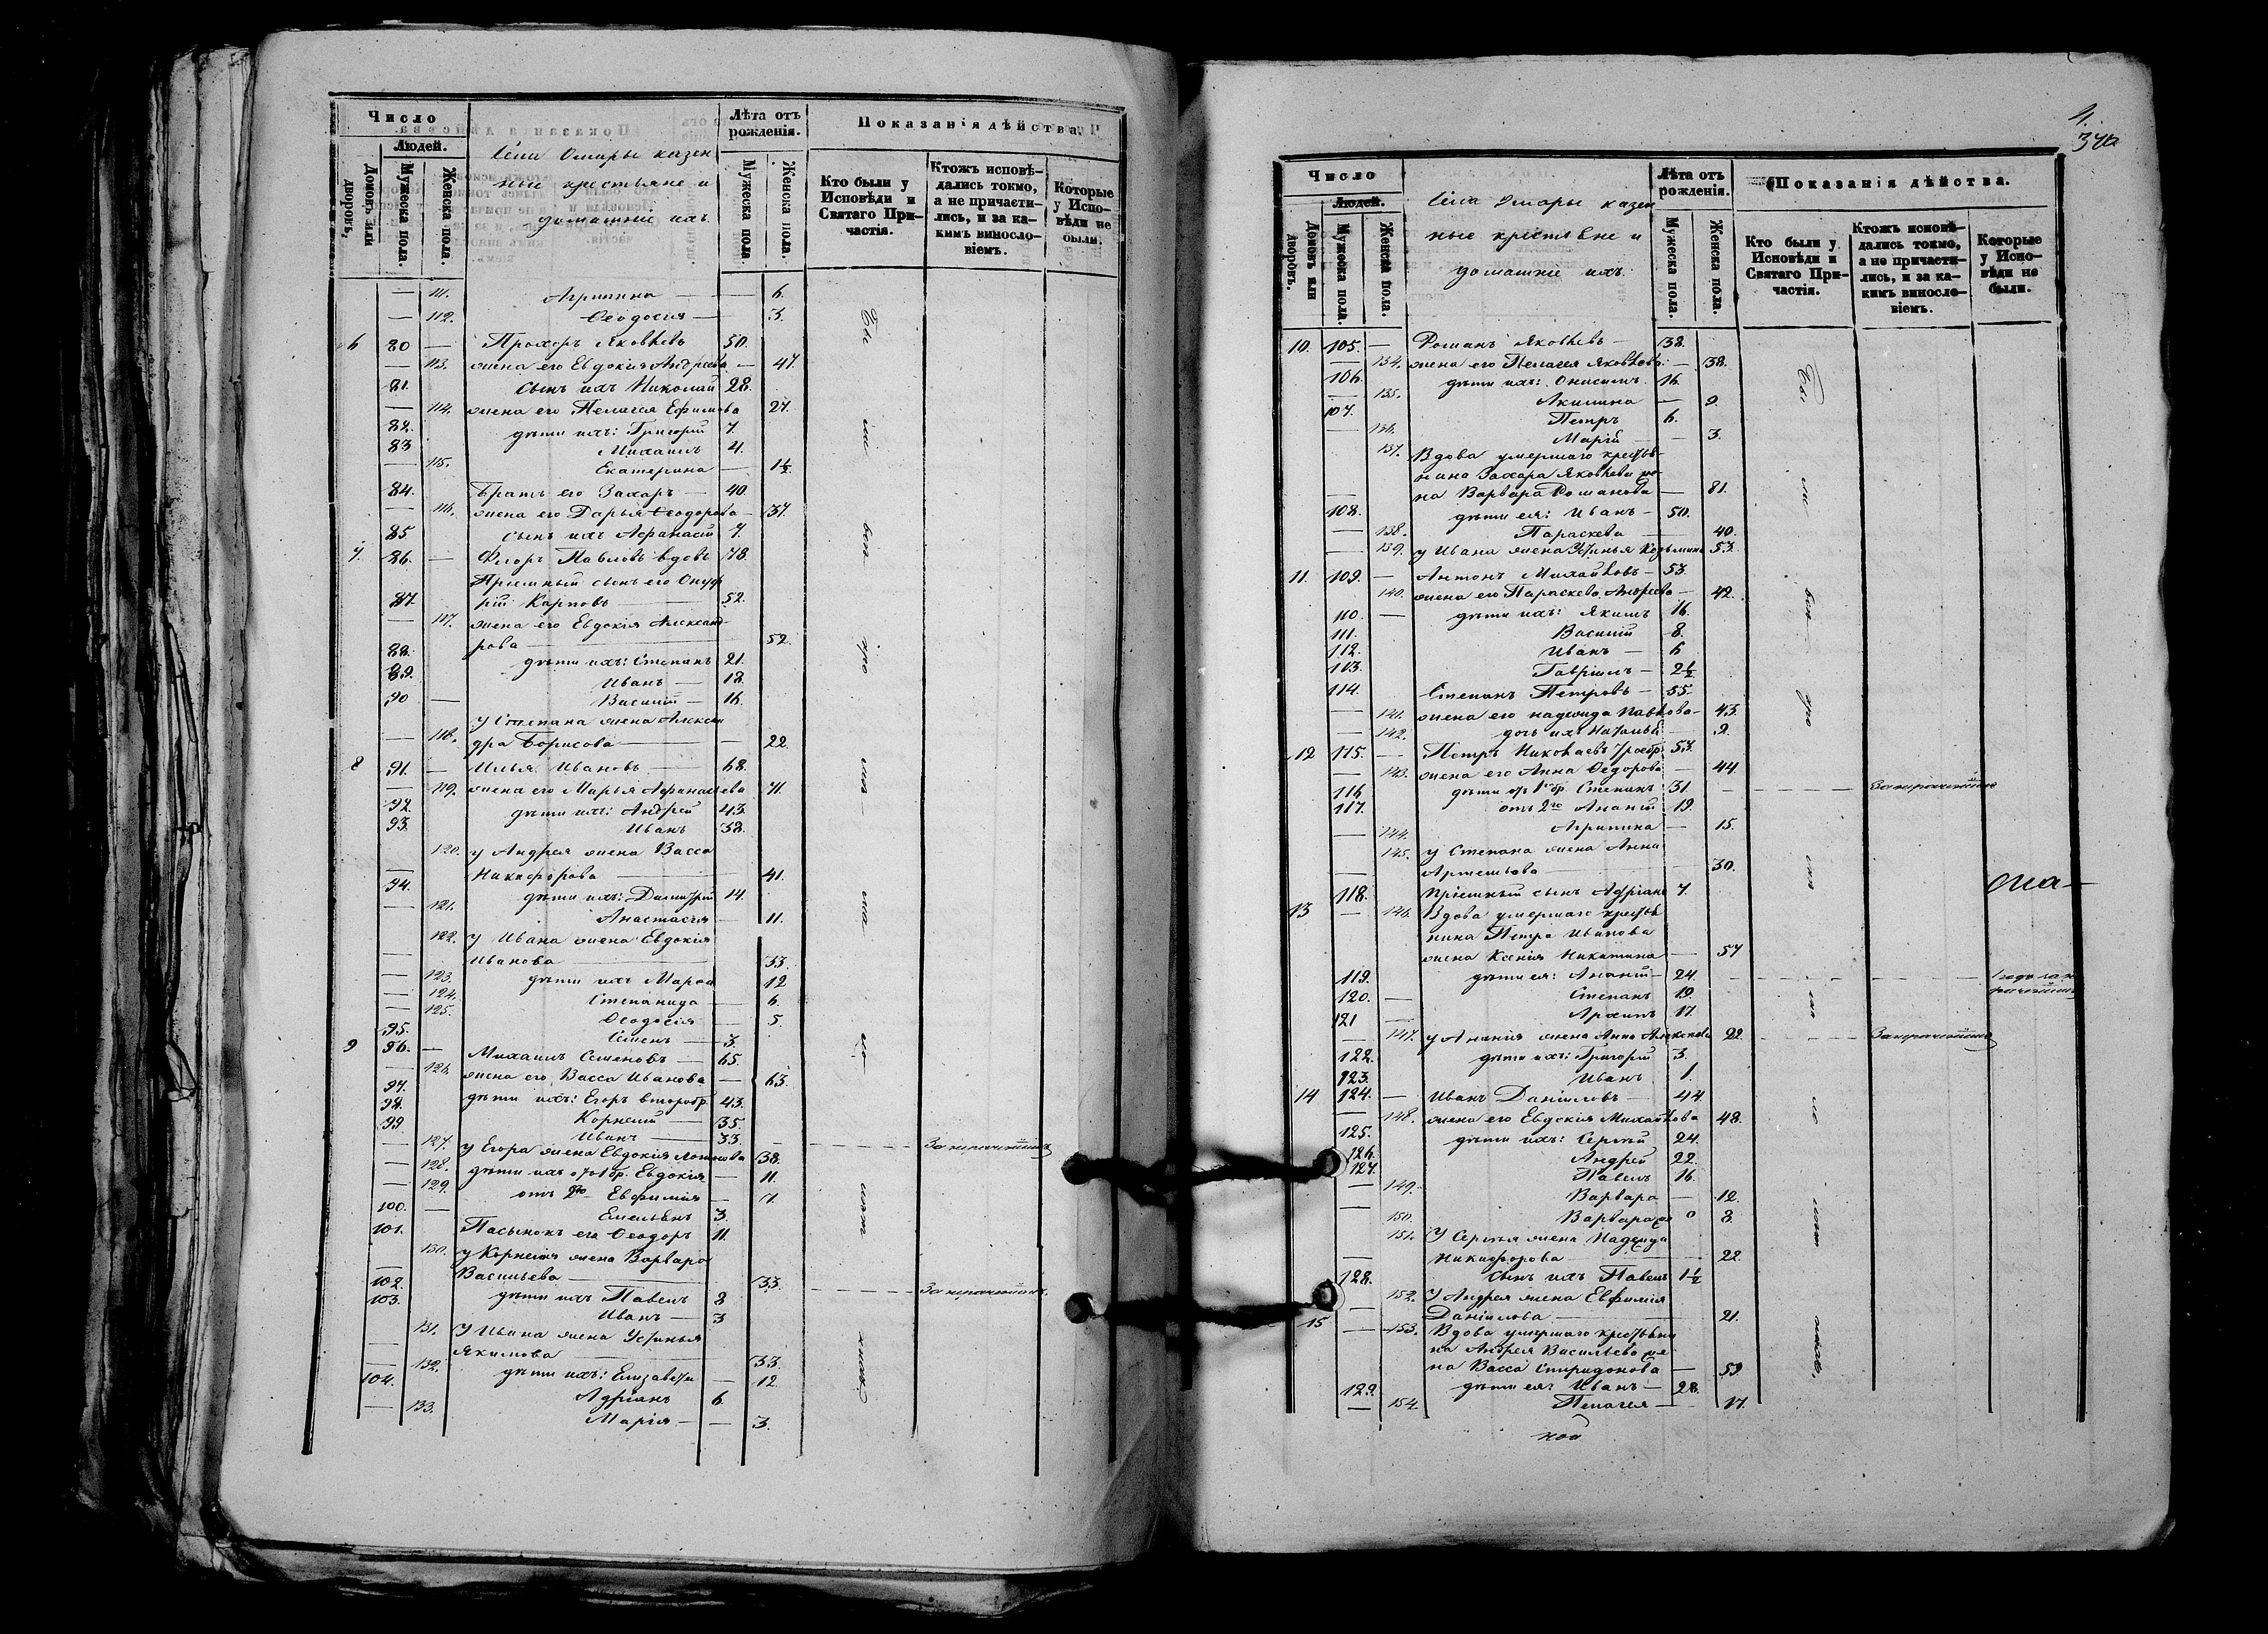 Число
Людей.
Домовъ или дворовъ.
Мужеска пола.
Женска пола.
Села Омары казен
ные крестьяне и
домашніе ихъ.
Лѣта отъ рожденія.
Мужеска пола.
Женска пола.
Показанія дѣйства.
Кто были у Исповѣди и Святаго Причастія.
Ктожъ исповѣдались токмо, а не причастились, и за какимъ винословіемъ.
Которые у Исповѣди не были.
— 111. Агрипина — — 6.
— 112. Ѳеодосія — 3.
6 80 — Прохоръ Яковлевъ 50.
— 113. жена его Евдокія Андреева — 47.
81. сынъ ихъ Николай 28.
— 114. жена его Пелагея Ефимова 27.
82. дѣти ихъ: Григорій 7.
83 Михаилъ 4.
— 115. Екатерина — 1½.
84. братъ его Захаръ — 40.
— 116. жена его Дарья Ѳеодорова — 37.
85 сынъ ихъ Афанасій 7.
7. 86. — Флоръ Павловъ вдовъ 78.
Пріемный сынъ его Онуф
87. рій Карповъ — 52.
— 117. жена его Евдокія Александ-
рова — 52.
88. дѣти ихъ: Степанъ 21.
89. Иванъ — 18.
90 — Василій — 16.
у Степана жена Алексан
— 118. дра Борисова — — 22.
8 91. — Илья Ивановъ — 68.
— 119. жена его Марья Афанасьева 71.
92. дѣти ихъ: Андрей 43.
93. Иванъ 38.
120. у Андрея жена Васса
— Никифорова — 41.
94. дѣти ихъ: Димитрій 14.
— 121. Анастасія — 11.
122. у Ивана жена Евдокія
— Иванова — 33.
— 123. дѣти ихъ Марѳа 12
— 124. Степанида — 6.
— 125. Ѳеодосія — 5.
95. Семенъ — 3.
9 96. — Михаилъ Семеновъ — 65.
— 126. жена его Васса Иванова — 63.
97. дѣти ихъ: Егоръ второбр. 43.
98. Корнелій — 35.
99 Иванъ — 33.
— 127. у Егора жена Евдокія 38. За нерачен[іемъ]
— 128. дѣти ихъ отъ 1 бр. Евдокія — 11.
— 129. отъ 2го Евфимія — 7.
100. — Емельянъ 3.
101. Пасынокъ его Ѳеодоръ 11.
130. у Корнелія жена Варвара
— Васильева — 33.
102. дѣти ихъ Павелъ 8
103. Иванъ — 3
131. У Ивана жена Устинья
— Якимова — 33.
— 132. дѣти ихъ: Елизавета — 12.
104. Адріанъ 6.
— 133. Марія — — 3.
Бы
ли
всѣ
про
1.
Число
Людей.
Домовъ или дворовъ.
Мужеска пола.
Женска пола.
Села Омары казен
ные крестьяне и
домашніе ихъ.
Лѣта отъ рожденія.
Мужеска пола.
Женска пола.
Показанія дѣйства.
Кто были у Исповѣди и Святаго Причастія.
Ктожъ исповѣдались токмо, а не причастились, и за какимъ винословіемъ.
Которые у Исповѣди не были.
10. 105. — Романъ Яковлевъ — 38.
— 134. жена его Пелагея Яковлева — 38.
106. дѣти ихъ: Онисимъ 16.
— 135. Акилина — 9.
107. Петръ 6.
— 136. Марія — 3.
137. Вдова умершаго крестья-
нина Захара Яковлева же-
— на Варвара Романова — 81.
108. дѣти ея: Иванъ — 50.
— 138. Параскева — 40.
— 139. у Ивана жена Устинья Козьмина 53.
11. 109. — Антонъ Михайловъ — 53.
140. жена его Параскева Андреева — 42.
110 — дѣти ихъ: Якимъ 16.
111. Василій 8.
112. Иванъ — 6
113. Гавріилъ — 2½
114. Степанъ Петровъ — 55.
— 141. жена его Надежда Павлова — 43.
— 142. дочь ихъ Наталья — 9.
12 115. — Петръ Николаевъ 53.
— 143. жена его Анна Ѳедорова — 44.
116 дѣти отъ 1го бр. Степанъ 31
117. отъ 2го Ананій 19.
— 144. Агрипина — 15.
145. у Степана жена Анна
— Артемьева — 30.
118. Пріемный сынъ Адріанъ 7.
13 — 146. Вдова умершаго крестья
нина Петра Иванова
жена Ксенія Никитина — 57
119. дѣти ея: Ананій — 24.
120. — Степанъ 19.
121 — Архипъ 17.
— 147. у Ананія жена Анна Алексеева 22.
122. дѣти ихъ: Григорій 3.
123. Иванъ 1.
14 124. — Иванъ Даніиловъ — 44.
— 148. жена его Евдокія Михайлова 48.
125. дѣти ихъ: Сергѣй 24.
126. Андрей 22.
127. Павелъ 16.
— 149. Варвара — 12.
— 150. Варвара 8.
151. У Сергѣя жена Надежда
— Никифорова — 22.
128. сынъ ихъ Павелъ 1½
152. У Андрея жена Евфимія
— Даніилова — 21.
15 — 153. Вдова умершаго крестьяни
на Андрея Васильева же-
на Васса Спиридонова — 59.
129. дѣти ея: Иванъ — 28.
— 154. Пелагея — 17.
Бы
ли
всѣ
про